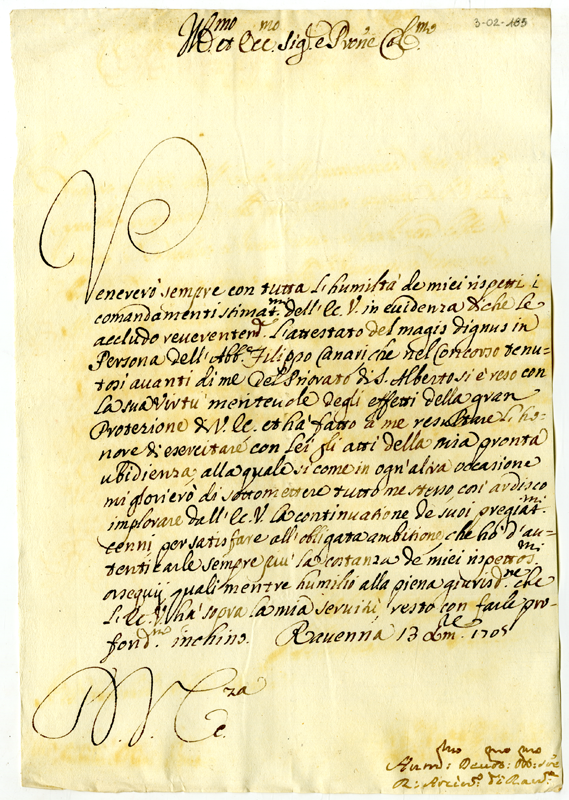 3-02-185
Ill.mo et Ecc.mo Sig.re e P.rone Col.mo
Venererò sempre con tutta l'humiltà de miei rispetti i
comandamenti stimat.mi dell'Ec. V. in euidenza di che le
accludo reuerentem.te l'attestato del magis dignus in
Persona dell'Abb. Filippo Canari che nel Concorso tenu-
tosi auanti di me del Priorato di S. Alberto si è reso con
la sua Virtù meriteuole degli effetti della gran
Protezione di V. Ec. et hà fatto à me resultare l'ho-
nore di esercitare con Lei gli atti della mia pronta
ubidienza, alla quale si come in ogn'altra occasione
mi glorierò di sottomettere tutto me stesso, così ardisco
implorare dall'Ec. V. la continuatione de suoi pregiat.mi
cenni per satisfare all'obligata ambitione, che hò d'au-
tenticarle sempre più la costanza de miei rispettos.mi
ossequij quali mentre humilio alla piena giurisd.ne che
l'Ec. V. hà sopra la mia seruitù resto con farle pro-
fond.mo inchino. Ravenna 13 Xm.re 1705
D. V. Ecc.za
Hum.mo Deuot.mo Obb.mo Ser.re
R. Arciu.o di Rau.a